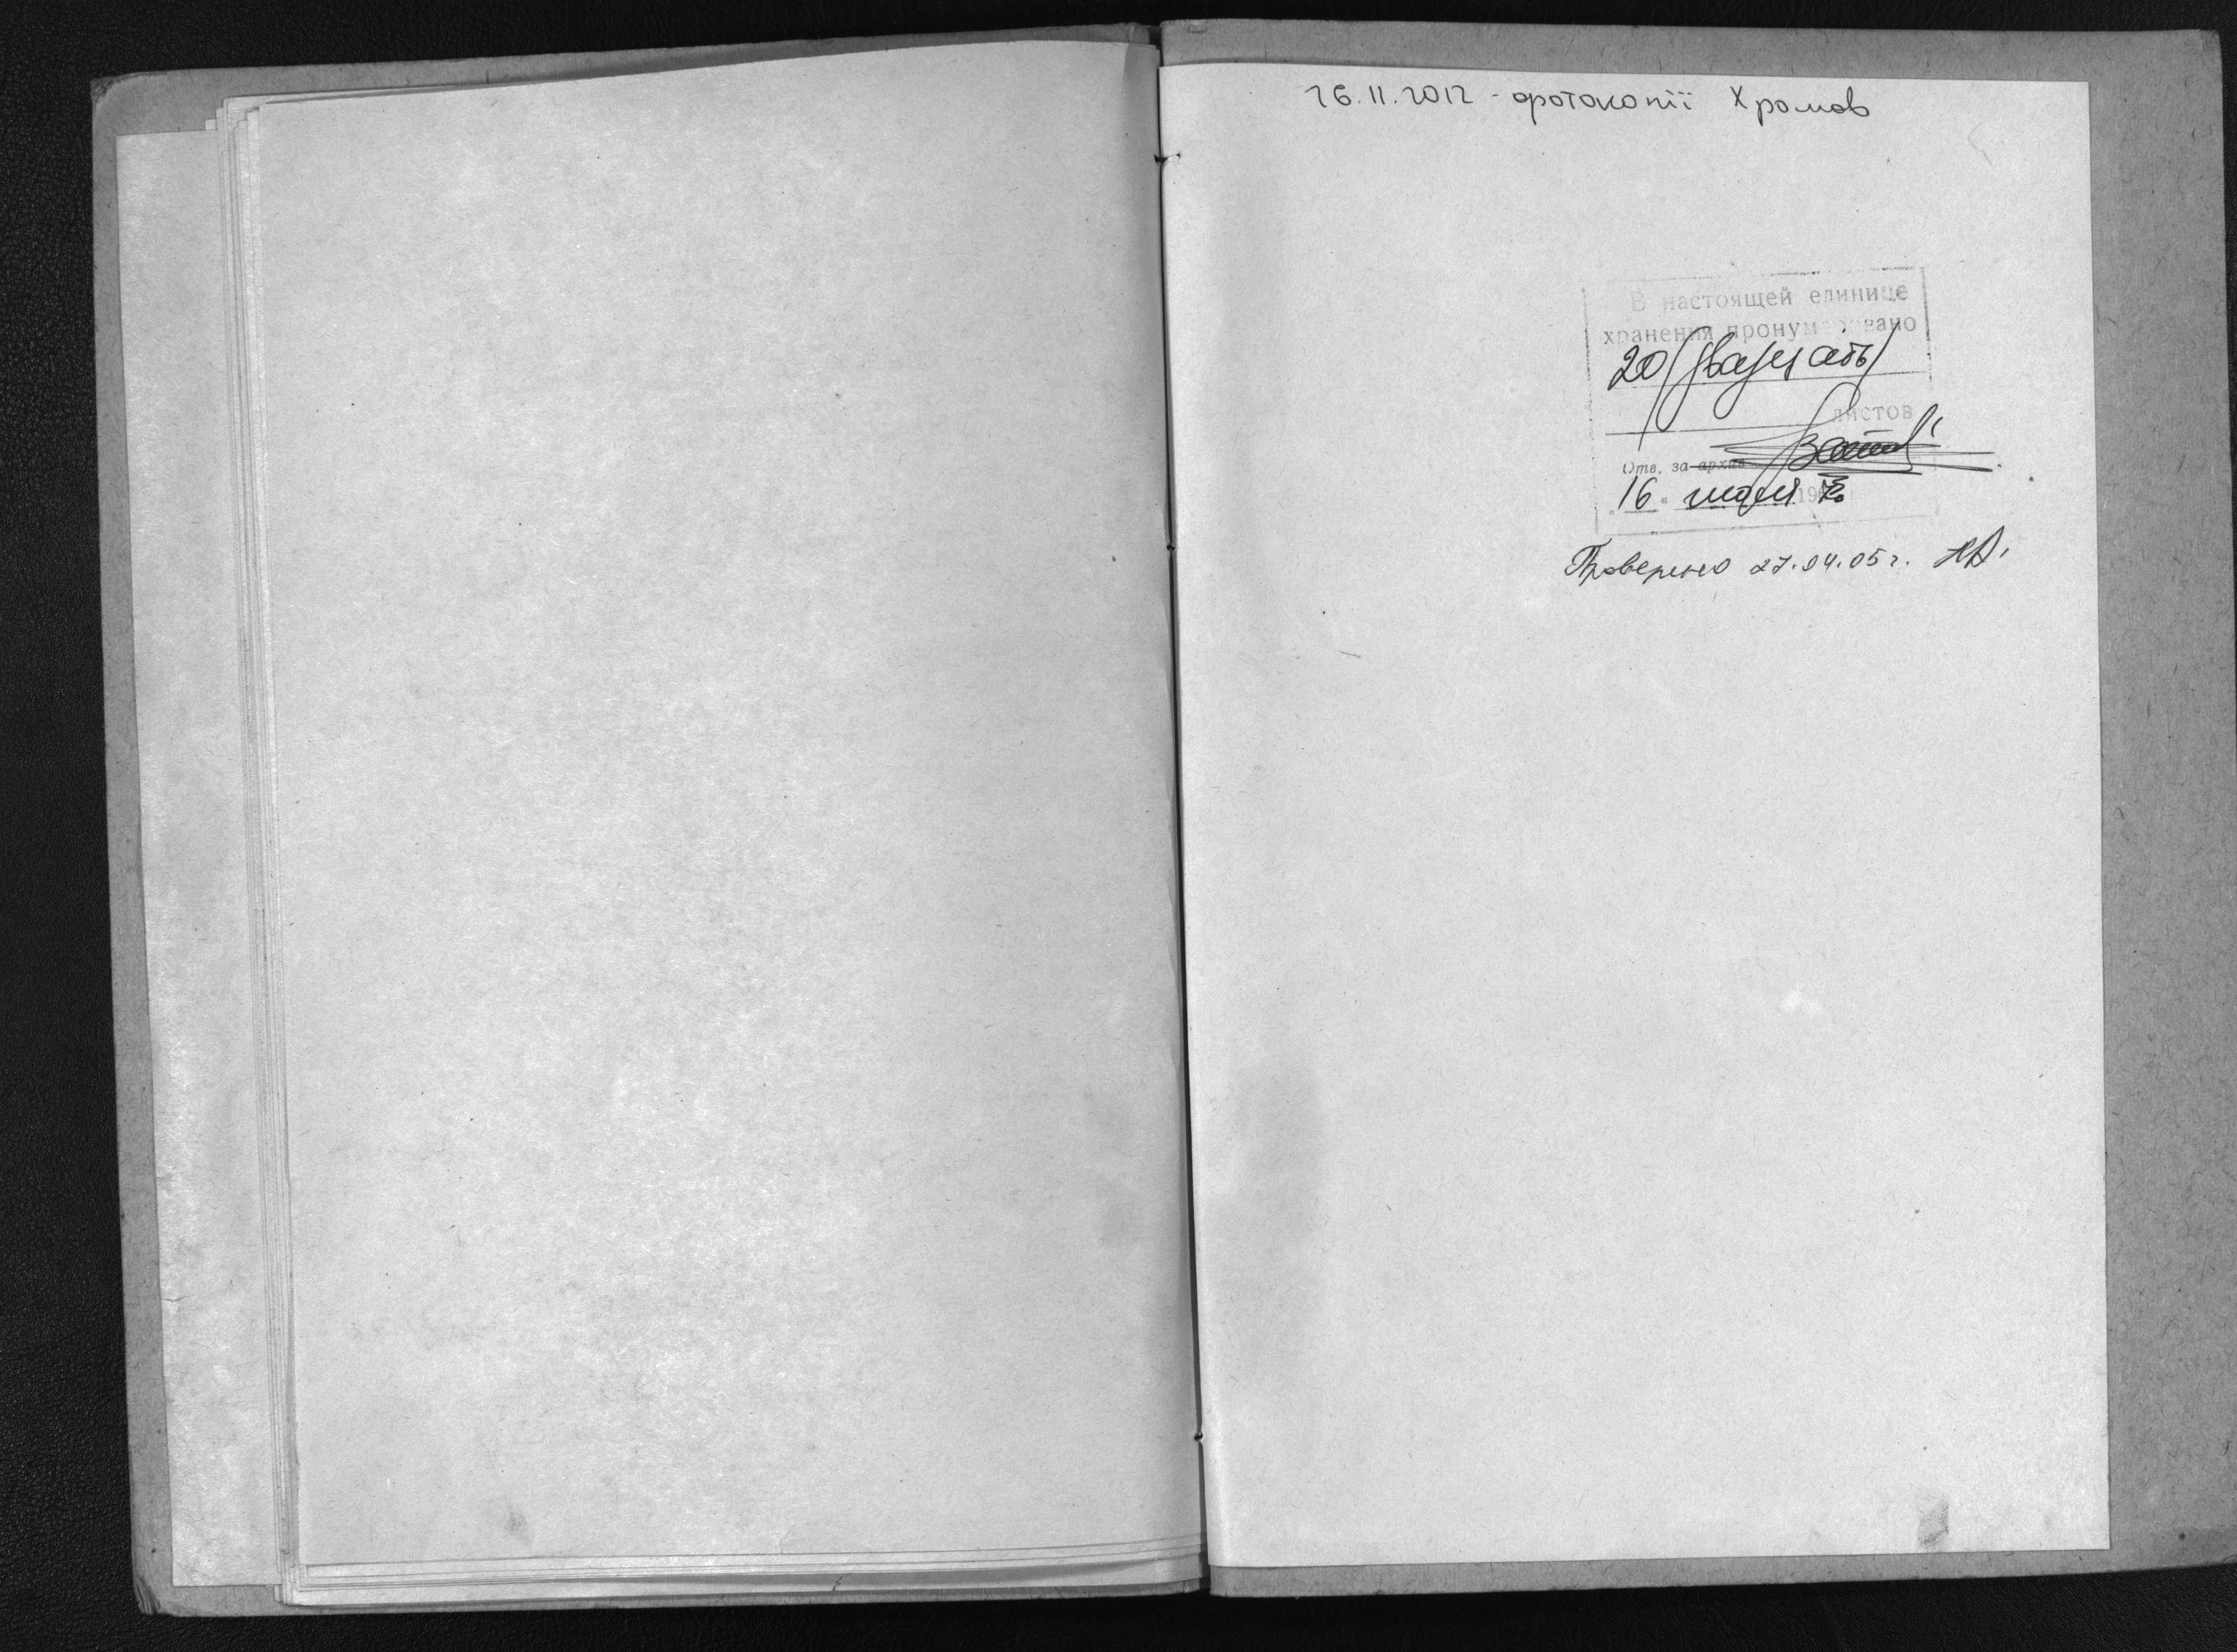 26.11.2012 - фотокопії Хромов
В настоящей единице
хранения пронумеровано
20 /двадцать/
листов
Отв. за архив
"16" июля 19
Проверено 27.04.05 г.